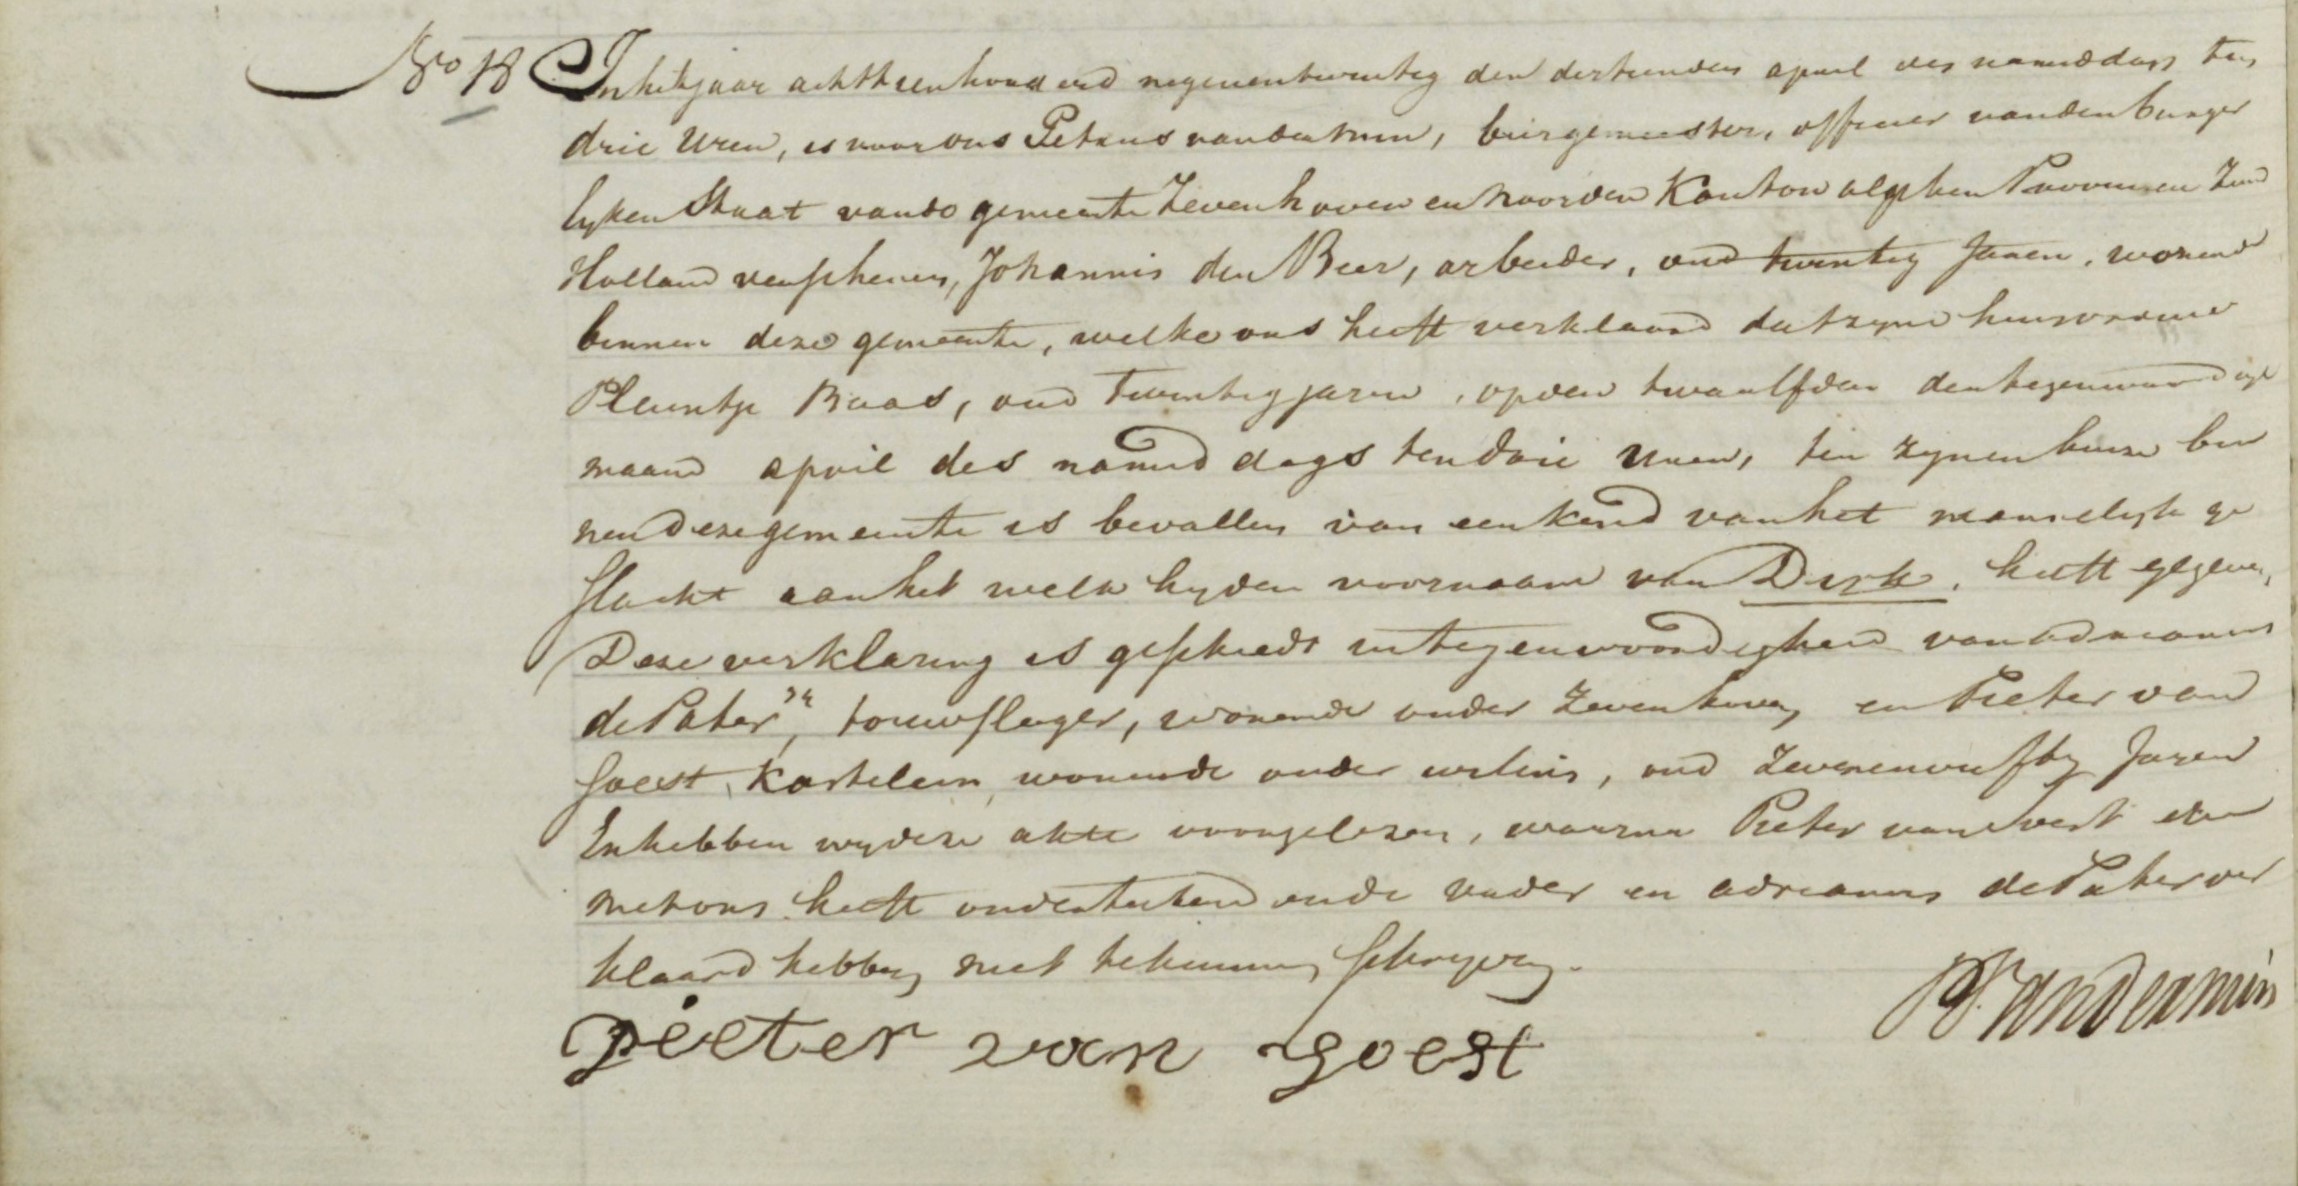 No 18 In het jaar achttienhonderd negenentwintig den dertienden april des namiddags ten
drie uren, is voor ons Petrus van der Min, burgemeester, officier van den burger
lyken Staat van de gemeente Zevenhoven en Noorden Kanton alphen Provincien Zuid
Holland verschenen, Johannis den Beer, arbeider, oud twintig Jaren, wonende
binnen deze gemeente, welke ons heeft verklaard dat zyne huisvrouw
Pleuntje Baas, oud Twintig jaren, op den twaalfden den tegenwoordige
maand april des namiddags ten drie uren, ten zynen huize bin
nen deze gemeente is bevallen van een kind van het mannelyk ge
slacht aan het welk hy den voornaam van Dirk heeft gegeven,
Deze verklaring is geschiedt in tegenwoordigheid van adrianus
de Pater, touwslager, wonende onder Zevenhoven en Pieter van
Goest, Kastelein, wonende onder, oud zevenenvyftig Jaren
En hebben wy deze akte voorgelezen, waarna Pieter van Goest
met ons heeft ondertekend en de vader en adrianus de Pater ver
klaard hebben niet te kunnen schryven.
pieter van goest
P Van der min